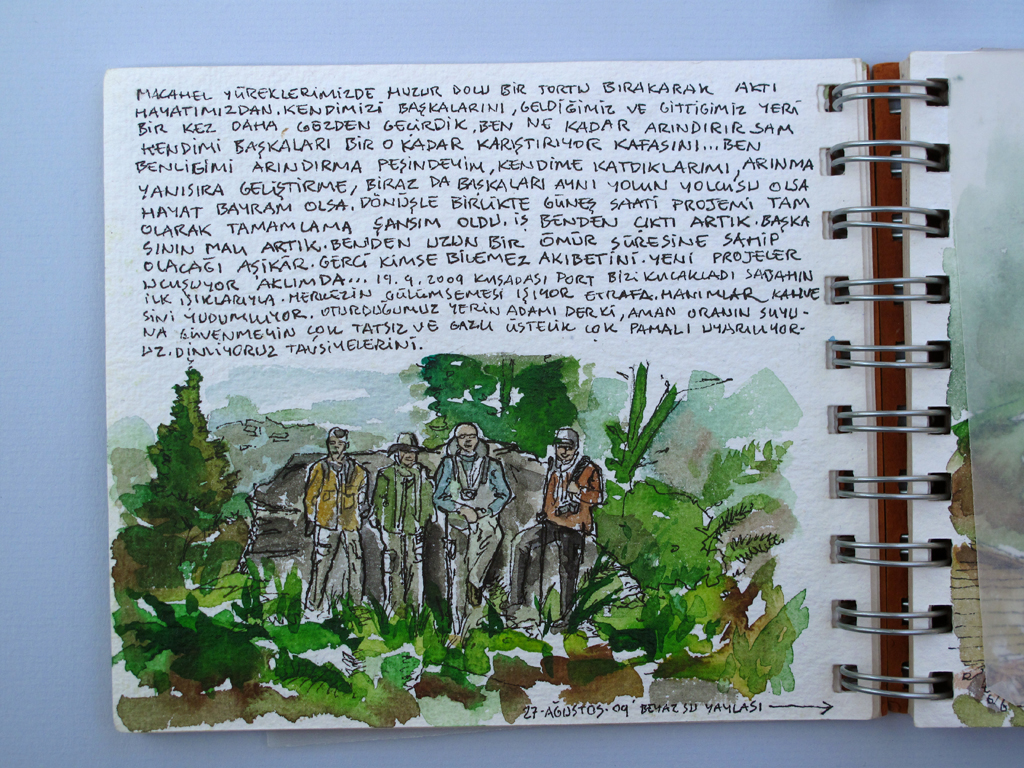 MACAHEL YÜREKLERİMİZDE HUZUR DOLU BİR TORTU BIRAKARAK AKTI
HAYATIMIZDAN. KENDİMİZİ BAŞKALARINI, GELDİĞİMİZ VE GİTTİGİMİZ YERİ
BİR KEZ DAHA GÖZDEN GEÇİRDİK. BEN NE KADAR ARINDIRIRSAM
KENDİMİ BAŞKALARI BİR O KADAR KARIŞTIRIYOR KAFASINI... BEN
BENLİGİMİ ARINDIRMA PEŞİNDEYİM, KENDİME KATDIKLARIMI, ARINMA
YANISIRA GELİŞTİRME, BİRAZ DA BAŞKALARI AYNI YOLUN YOLCUSU OLSA
HAYAT BAYRAM OLSA. DÖNÜŞLE BİRLİKTE GÜNEŞ SAATİ PROJEMİ TAM
OLARAK TAMAMLAMA ŞANSIM OLDU. İŞ BENDEN ÇIKTI ARTIK. BAŞKA
SININ MALI ARTIK. BENDEN UZUN BİR ÖMÜR SÜRESİNE SAHİP
OLACAĞI AŞİKÂR. GERÇİ KİMSE BİLEMEZ AKIBETİNİ. YENİ PROJELER
UCUŞUYOR AKLIMDA... 19.9.2009 KUŞADASI PORT BİZİ KUCAKLADI SABAHIN
İLK IŞIKLARIYLA. MERKEZİN GÜLÜMSEMESİ IŞIYOR ETRAFA. HANIMLAR KAHVE
SİNİ YUDUMLUYOR. OTURDUĞUMUZ YERİN ADAMI DER Kİ, AMAN ORANIN SUYU-
NA GÜVENMEYİN ÇOK TATSIZ VE GAZLI ÜSTELİK ÇOK PAHALI UYARILIYOR-
UZ. DİNLİYORUZ TAVSİYELERİNİ.
27-AĞUSTOS-09' BEYAZSU YAYLASI →